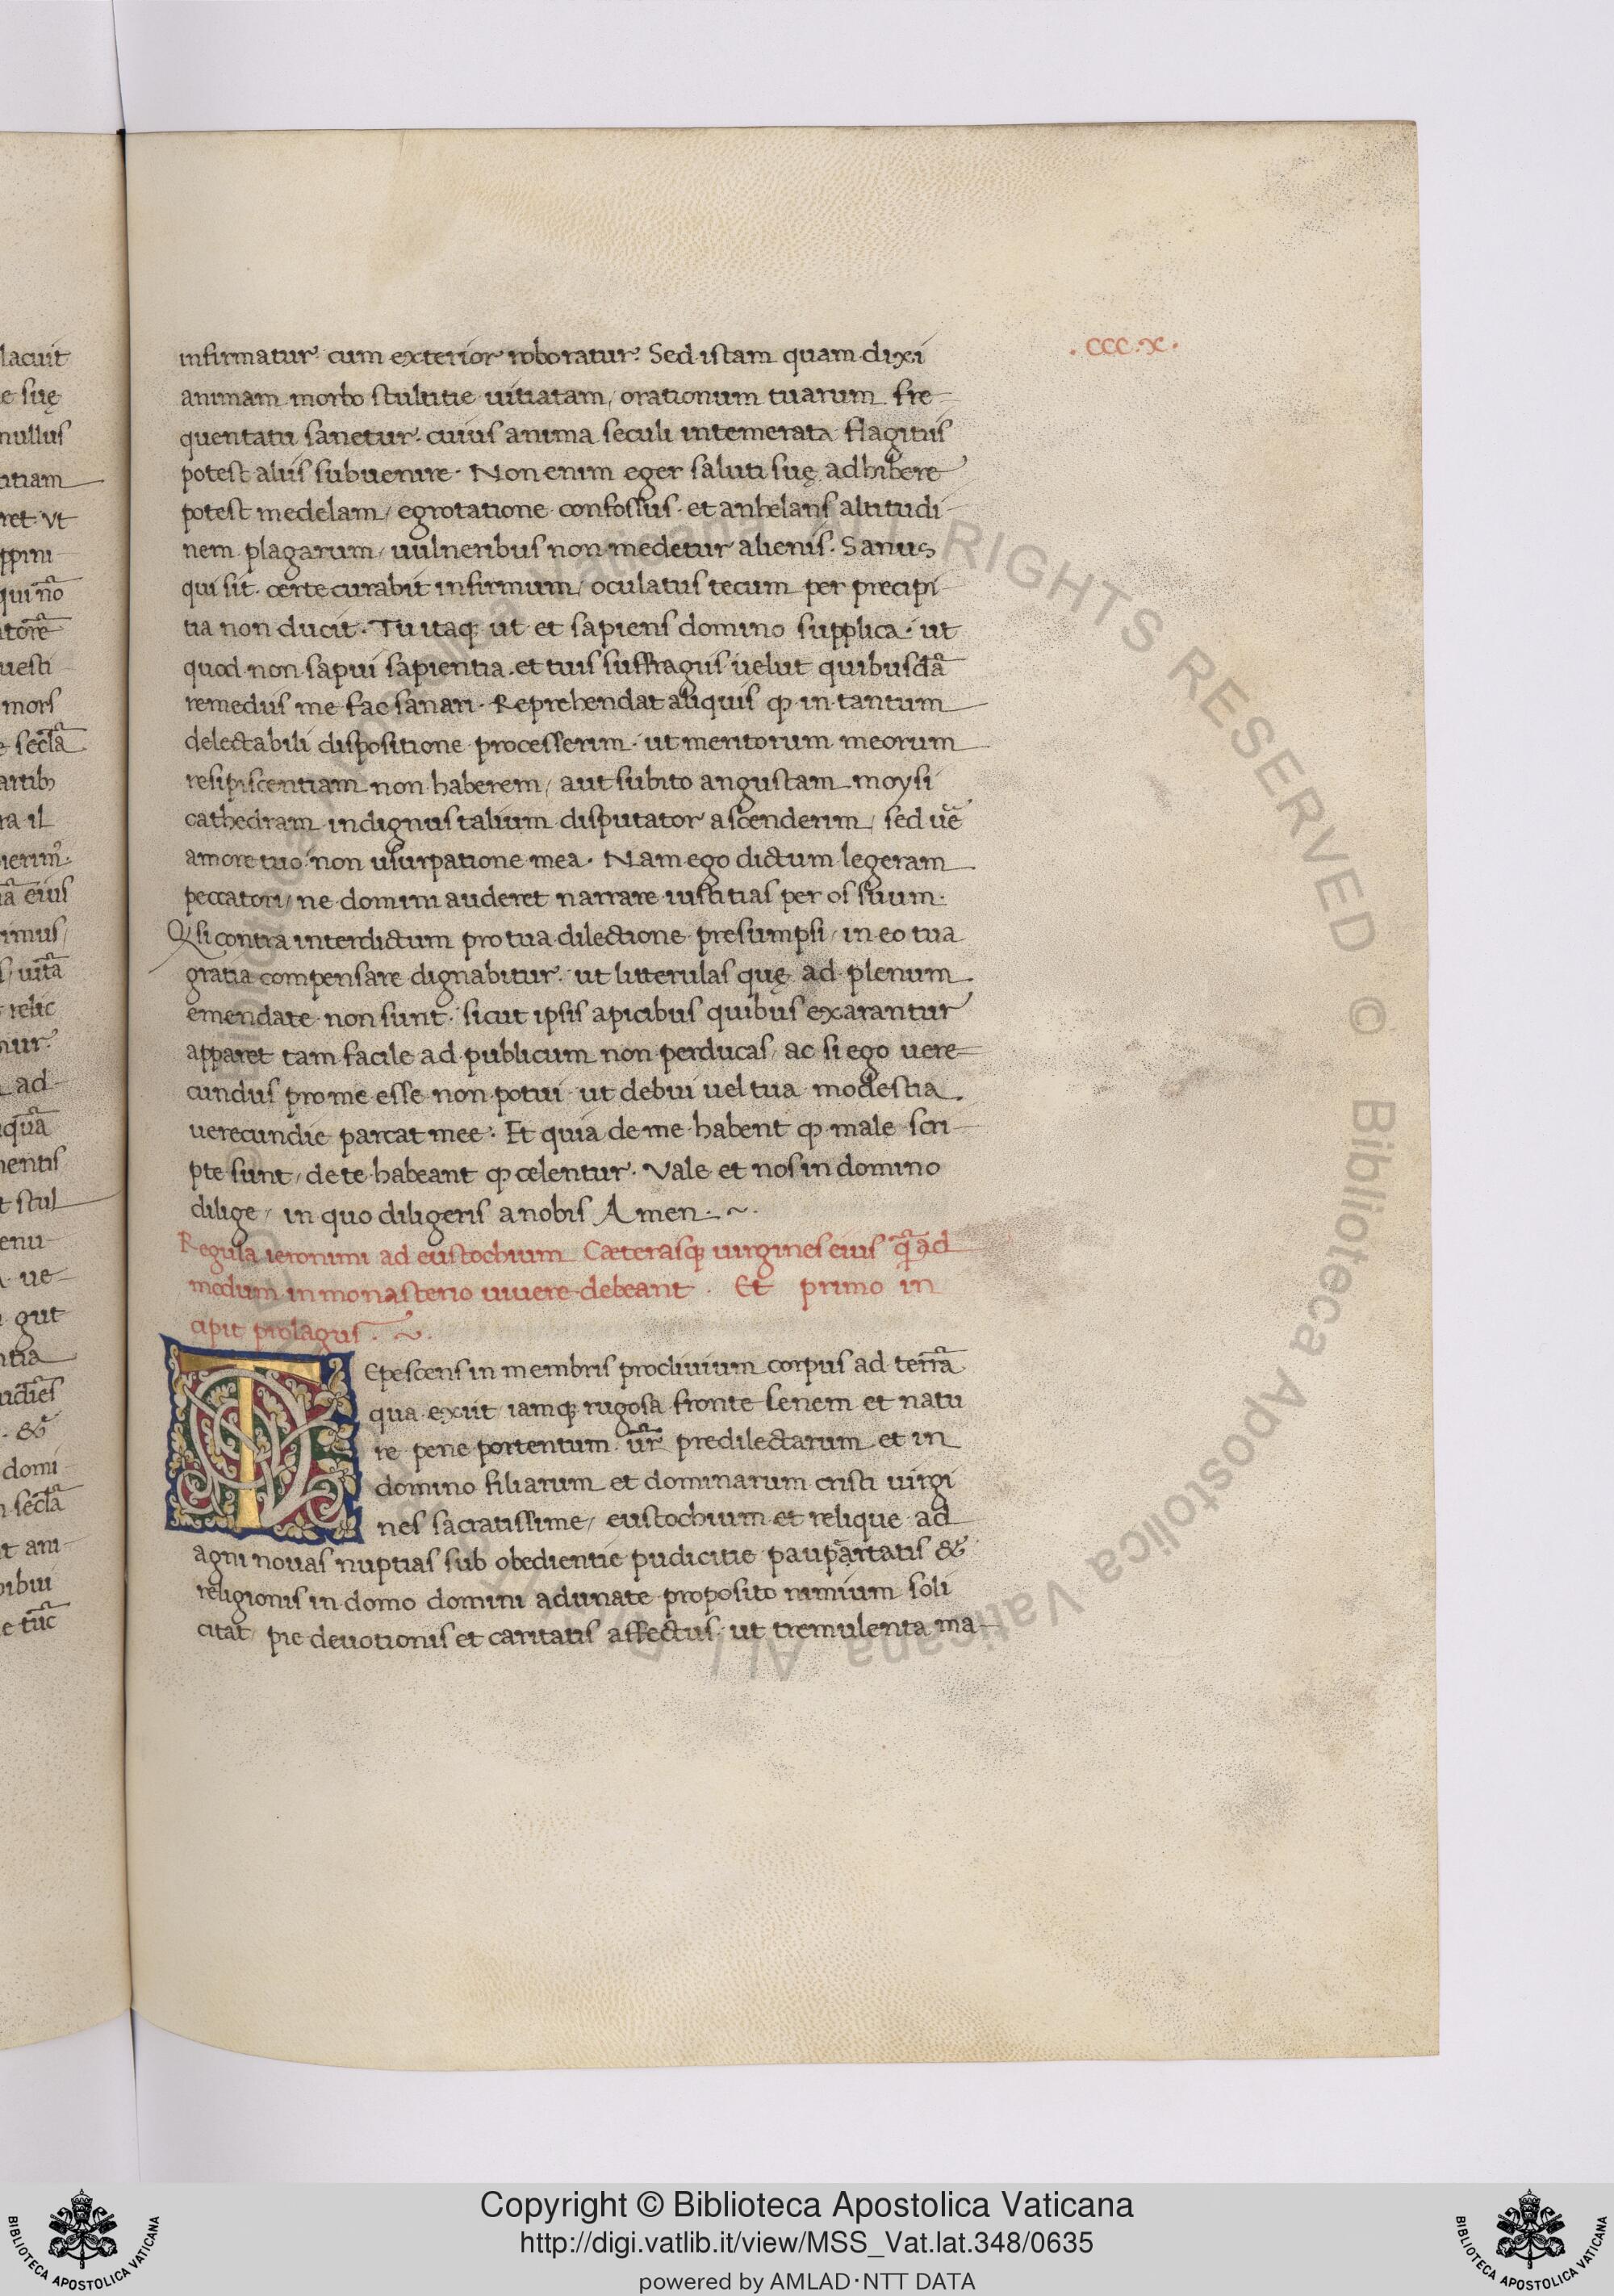 . ccc.x.
infirmatur cum exterior roboratur. Sed istam quam dixi
animam morbo stultitie uitiatam, orationum tuarum fre-
quentatu sanetur. cuius anima seculi intemerata flagitiis
potest aliis subuenire. Non enim eger saluti suę adhibere
potest medelam, egrotatione confossus. et anhelans altitudi-
nem plagarum, uulneribus non medetur alienis. Sanus
qui sit. certe curabit infirmum, oculatus tecum per precipi-
tia non ducit. Tu itaq; ut et sapiens domino supplica. ut
quod non sapui sapientia. et tuis suffragiis uelut quibusdā
remediis me fac sanari. Reprehendat aliquis ꝙ in tantum
delectabili dispositione processerim. ut meritorum meorum
resipiscentiam non haberem, aut subito angustam moysi
cathedram indignus talium disputator ascenderim, sed uē
amore tuo non usurpatione mea. Nam ego dictum legeram
peccatori, ne domini auderet narrare iustitias per os suum.
Qͥ si contra interdictum pro tua dilectione presumpsi, in eo tua
gratia compensare dignabitur. ut litterulas quę ad plenum
emendate non sunt. sicut ipsis apicibus quibus exarantur
apparet tam facile ad publicum non perducas, ac si ego uere-
cundus pro me esse non potui ut debui uel tua modestia
uerecundie parcat mee. Et quia de me habent ꝙ male scri-
pte sunt, de te habeant ꝙ celentur. Vale et nos in domino
dilige, in quo diligeris a nobis Amen. ~.
Regula ieronimi ad eustochium Cæterasq; uirgines eius q̄ ad
modum in monasterio uiuere debeant. Et primo in
cipit prolagus. ~.
TEpescens in membris procliuium corpus ad terrā
qua exiit iamq; rugosa fronte senem et natu
re pene portentum ūr̄ predilectarum et in
domino filiarum et dominarum cristi uirgi
nes sacratissime, eustochium et relique ad
agni nouas nuptias sub obedientie pudicitie paupertatis &
religionis in domo domini adunate proposito nimium soli
citat, pie deuotionis et caritatis affectus ut tremulenta ma-
Copyright © Biblioteca Apostolica Vaticana
http://digi.vatlib.it/view/MSS_Vat.lat.348/0635
powered by AMLAD·NTT DATA